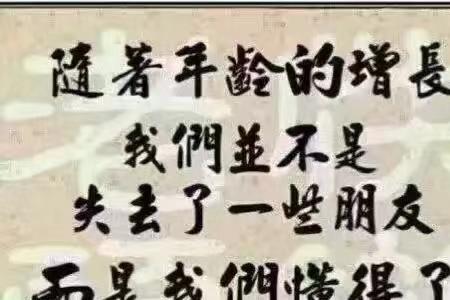 隨著年齡的增長
我們並不是
失去了一些朋友
而是我們懂得了